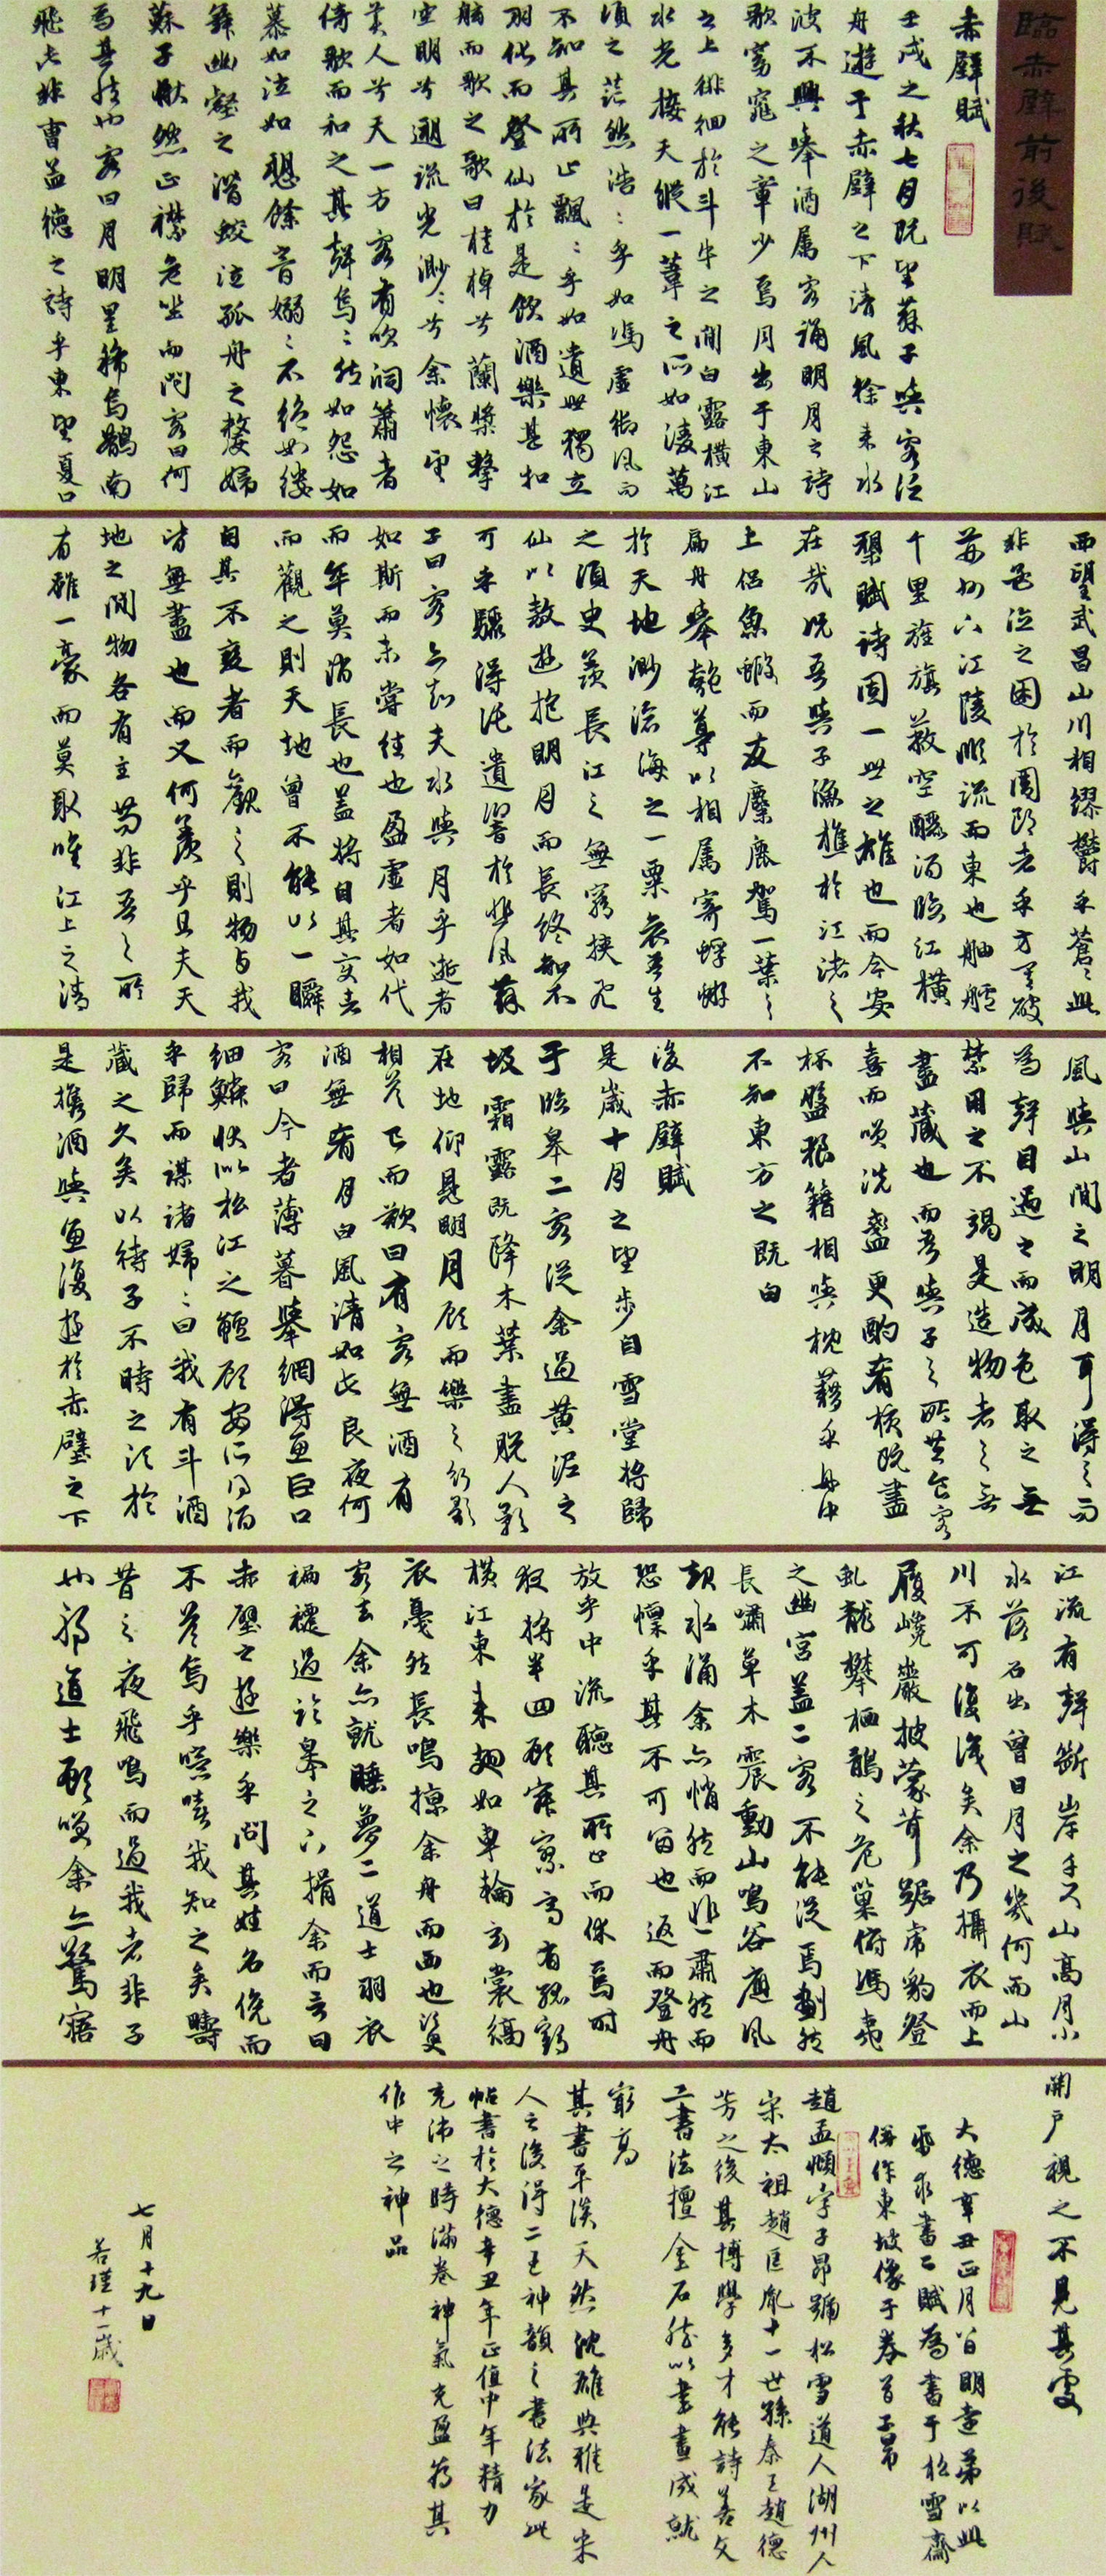 臨赤壁前後賦
赤壁賦
壬戌之秋七月既望蘇子與客泛
舟遊于赤壁之下清風徐来水
波不興舉酒属客誦明月之詩
歌窈窕之章少焉月出于東山
之上徘徊於斗牛之間白露横江
水光接天縱一葦之所如淩萬
頃之茫然浩:乎如馮虚御風而
不知其所止飄:乎如遺世獨立
羽化而登仙於是飲酒樂甚扣
舷而歌之歌曰桂棹兮蘭槳擊
空明兮遡流光渺:兮余懷望
美人兮天一方客有吹洞簫者
倚歌而和之其聲嗚:然如怨如
慕如泣如愬餘音嫋:不絶如縷
舞幽壑之潜蛟泣孤舟之嫠婦
蘇子愀然正襟危坐而問客曰何
為其然也客曰月明星稀烏鵲南
飛此非曹孟德之詩乎東望夏口
西望武昌山川相繆鬱乎蒼:此
非孟德之困於周郎者乎方其破
荊州下江陵順流而東也舳艫
千里旌旗蔽空釃酒臨江横
槊賦詩固一世之雄也而今安
在哉况吾與子漁樵於江渚之
上侶魚蝦而友麋鹿駕一葉之
扁舟舉匏尊以相属寄蜉蝣
於天地渺滄海之一粟哀吾生
之須臾羨長江之無窮挾飛
仙以敖遊抱明月而長終知不
可乎驟得託遺響於悲風蘇
子曰客亦知夫水與月乎逝者
如斯而未嘗往也盈虚者如代
而卒莫消長也蓋将自其变者
而觀之則天地曾不能以一瞬
自其不變者而觀之則物与我
皆無盡也而又何羨乎且夫天
地之間物各有主苟非吾之所
有雖一豪而莫取唯江上之清
風與山間之明月耳得之而
為聲目遇之而成色取之無
禁用之不竭是造物者之無
盡藏也而吾與子之所共食客
喜而咲洗盞更酌肴核既盡
杯盤狼籍相與枕藉乎舟中
不知東方之既白
後赤壁賦
是歲十月之望步自雪堂将歸
于臨皋二客從余過黄泥之
坂霜露既降木葉盡脱人影
在地仰見明月顧而樂之行歌
相答已而歎曰有客無酒有
酒無肴月白風清如此良夜何
客曰今者薄暮舉網得魚巨口
細鱗状似松江之鱸顧安所得酒
乎歸而謀諸婦:曰我有斗酒
藏之久矣以待子不時之須於
是攜酒與魚復遊於赤壁之下
江流有聲斷岸千尺山高月小
水落石出曾日月之幾何而山
川不可復識矣余乃攝衣而上
履巉巖披蒙茸踞虎豹登
虬龍攀栖鶻之危巢俯馮夷
之幽宫蓋二客不能從焉劃然
長嘯草木震動山鳴谷應風
起水涌余亦悄然而悲肅然而
恐懔乎其不可留也返而登舟
放乎中流聽其所止而休焉時
夜将半四顧寂寥適有孤鶴
横江東来翅如車輪玄裳縞
衣戛然長鳴掠余舟而西也須臾
客去余亦就睡夢二道士羽衣
褊褼過臨皋之下揖余而言曰
赤壁之遊樂乎問其姓名俛而
不答嗚乎噫嘻我知之矣疇
昔之夜飛鳴而過我者非子
也邪道士顧咲余亦驚寤
開户視之不見其處
大德辛丑正月八日明遠弟以此
紙求書二賦為書于松雪齋
併作東坡像于卷首子昂
趙孟頫字子昂號松雪道人湖州人
宋太祖趙匡胤十一世孫秦王趙德
芳之後其博學多才能詩善文
工書法擅金石然以書畫成就
最高
其書平淡天然沈雄典雅是宋
人之後得二王神韻之書法家此
帖書於大德辛丑年正值中年精力
充沛之時滿卷神氣充盈為其
作中之神品
七月十九日
若瑾十一歲